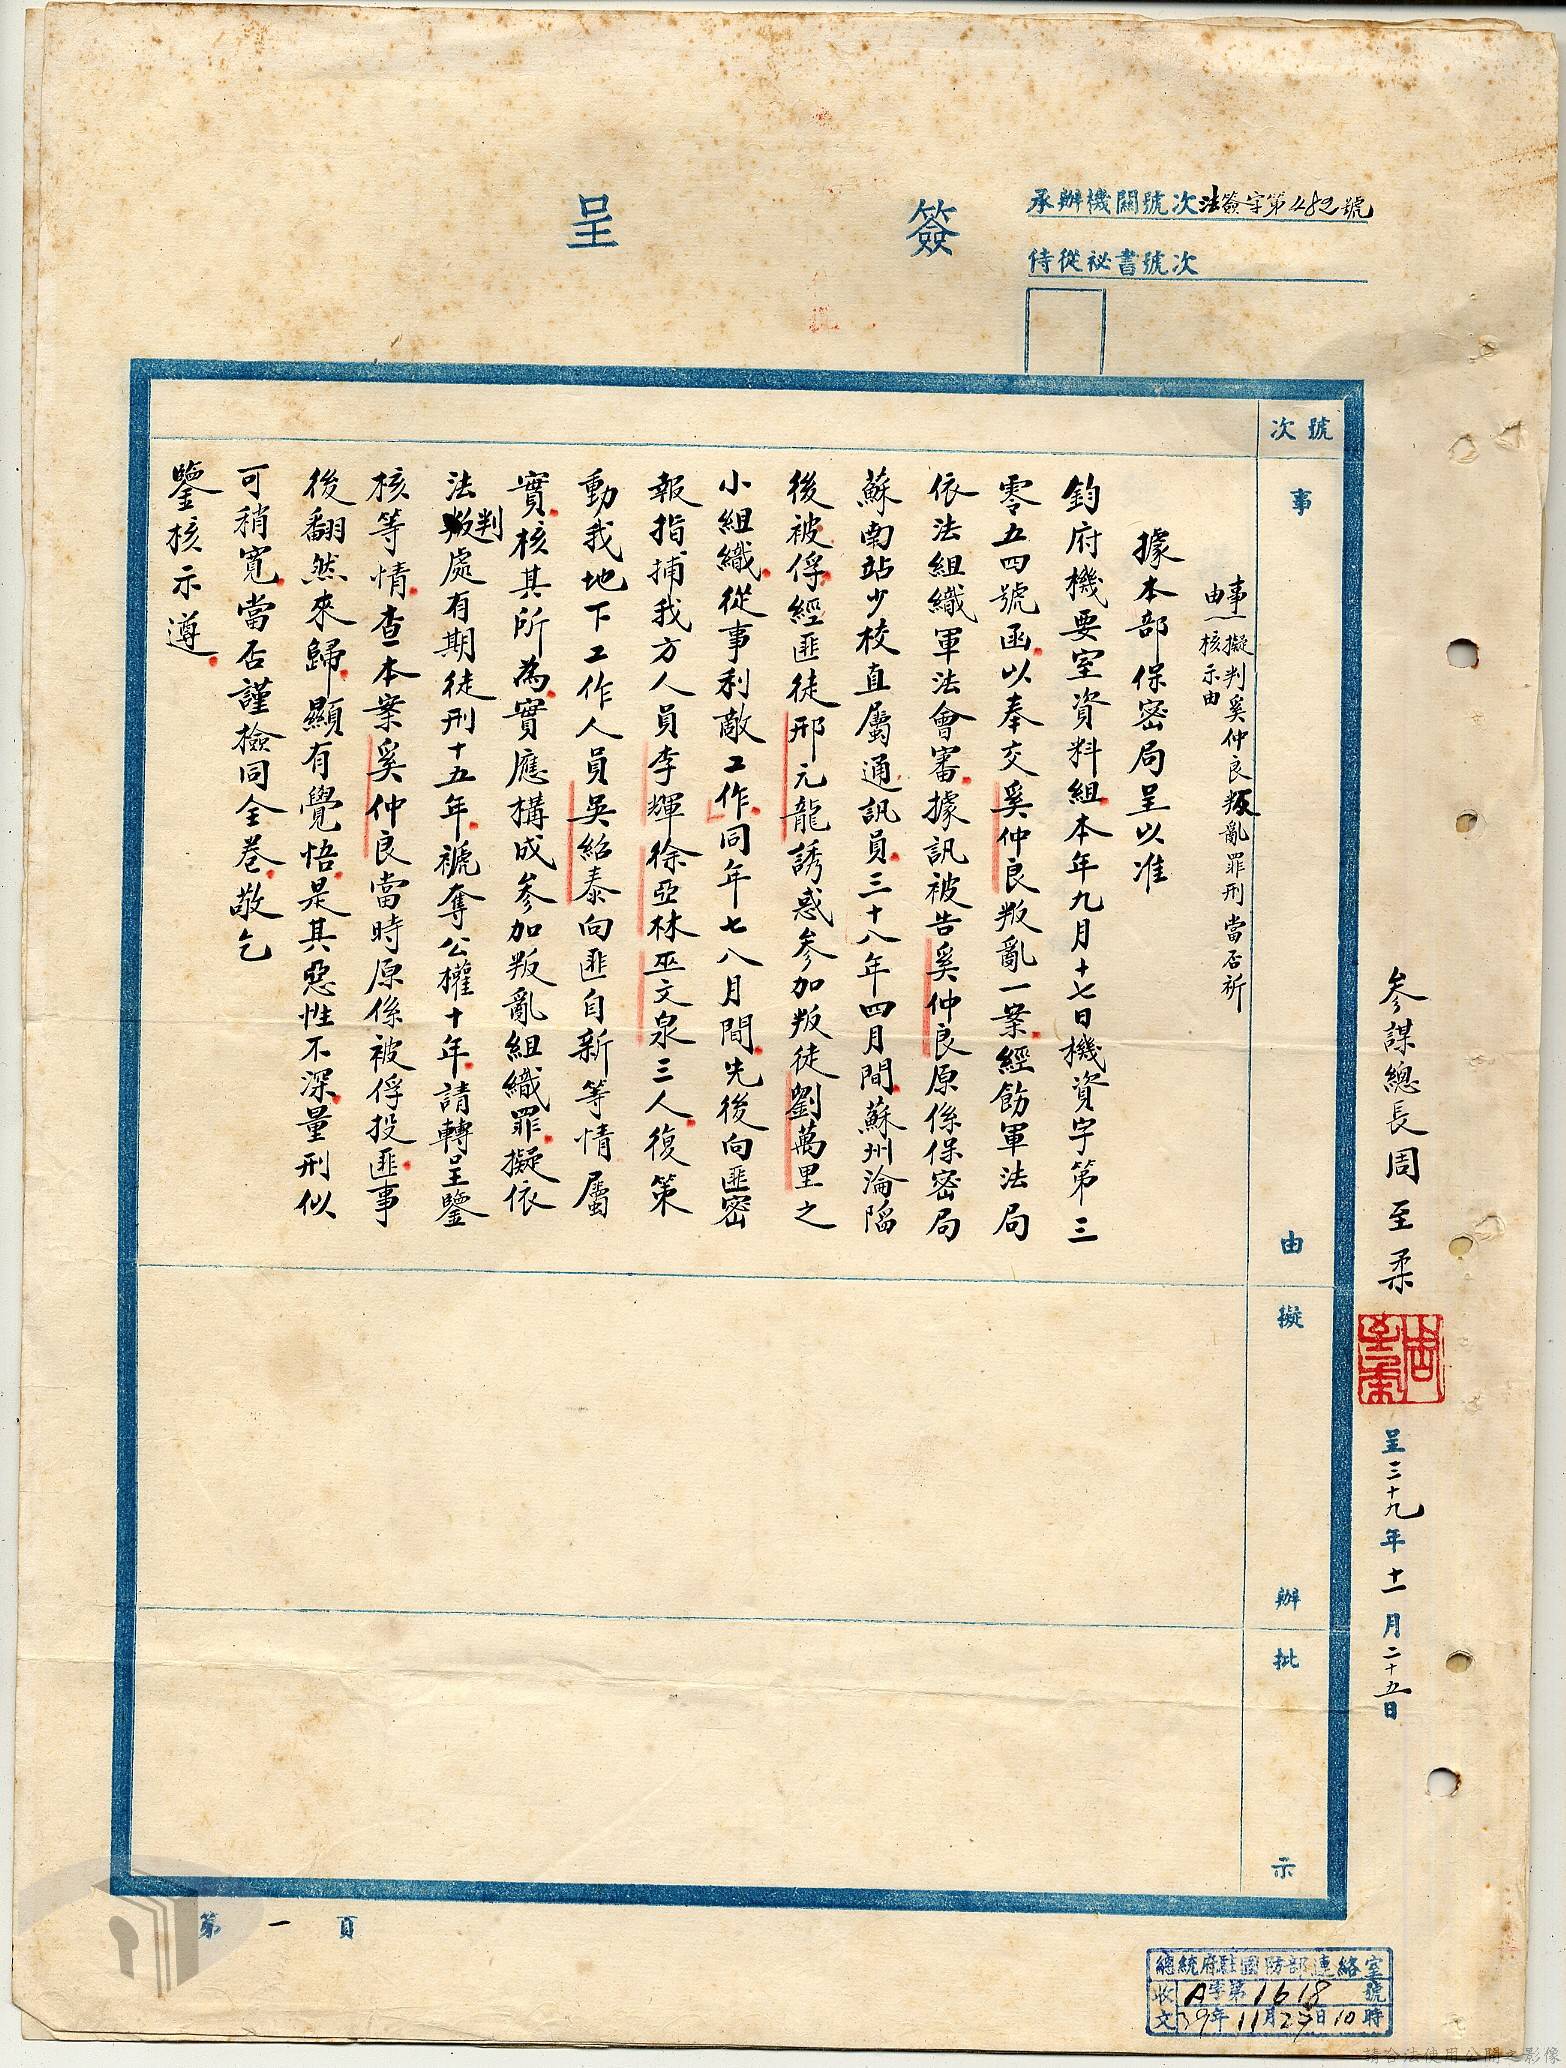 簽呈
承辦機關號次法簽字第482號
侍從祕書號次
參謀總長周至柔
周至柔
呈三十九年十一月二十五日
號次
事由
擬辦
批示
事由(擬判奚仲良叛亂罪刑當否祈
核示由
據本部保密局呈以准
鈞府機要室資料組本年九月十七日機資字第三
零五四號函以奉交奚仲良叛亂一案經飭軍法局
依法組織軍法會審據訊被告奚仲良原係保密局
蘇南站少校直屬通訊員三十八年四月間蘇州淪陷
後被俘經匪徒邢元龍誘惑參加叛徒劉萬里之
小組織從事利敵工作同年七八月間先後向匪密
報指捕我方人員李輝徐亞林巫文泉三人復策
動我地下工作人員吳紹泰向匪自新等情屬
實核其所為實應構成參加叛亂組織罪擬依
法判處有期徒刑十五年褫奪公權十年請轉呈鑒
核等情查本案奚仲良當時原係被俘投匪事
後翻然來歸顯有覺悟是其惡性不深量刑似
可稍寬當否謹檢同全卷敬乞
鑒核示遵
第一頁
總統府駐國防部連絡室
收 A字第1618號
文 39年11月27日10時
請合法使用公開之影像